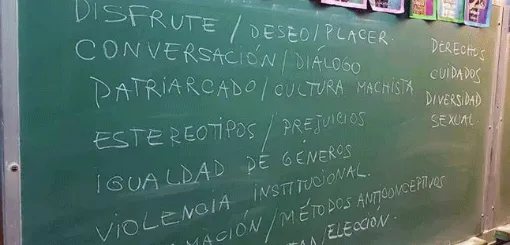 DISFRUTE / DESEO / PLACER.
CONVERSACIÓN / DIÁLOGO
PATRIARCADO / CULTURA MACHISTA
ESTEREOTIPOS / PREJUICIOS
IGUALDAD DE GÉNEROS
VIOLENCIA INSTITUCIONAL.
/ MÉTODOS ANTICONCEPTIVOS
/ELECCIÓN.
DERECHOS
CUIDADOS
DIVERSIDAD
SEXUAL.